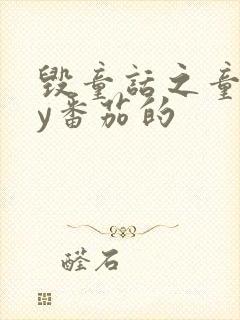 毁童话之童
y番茄的
醛石